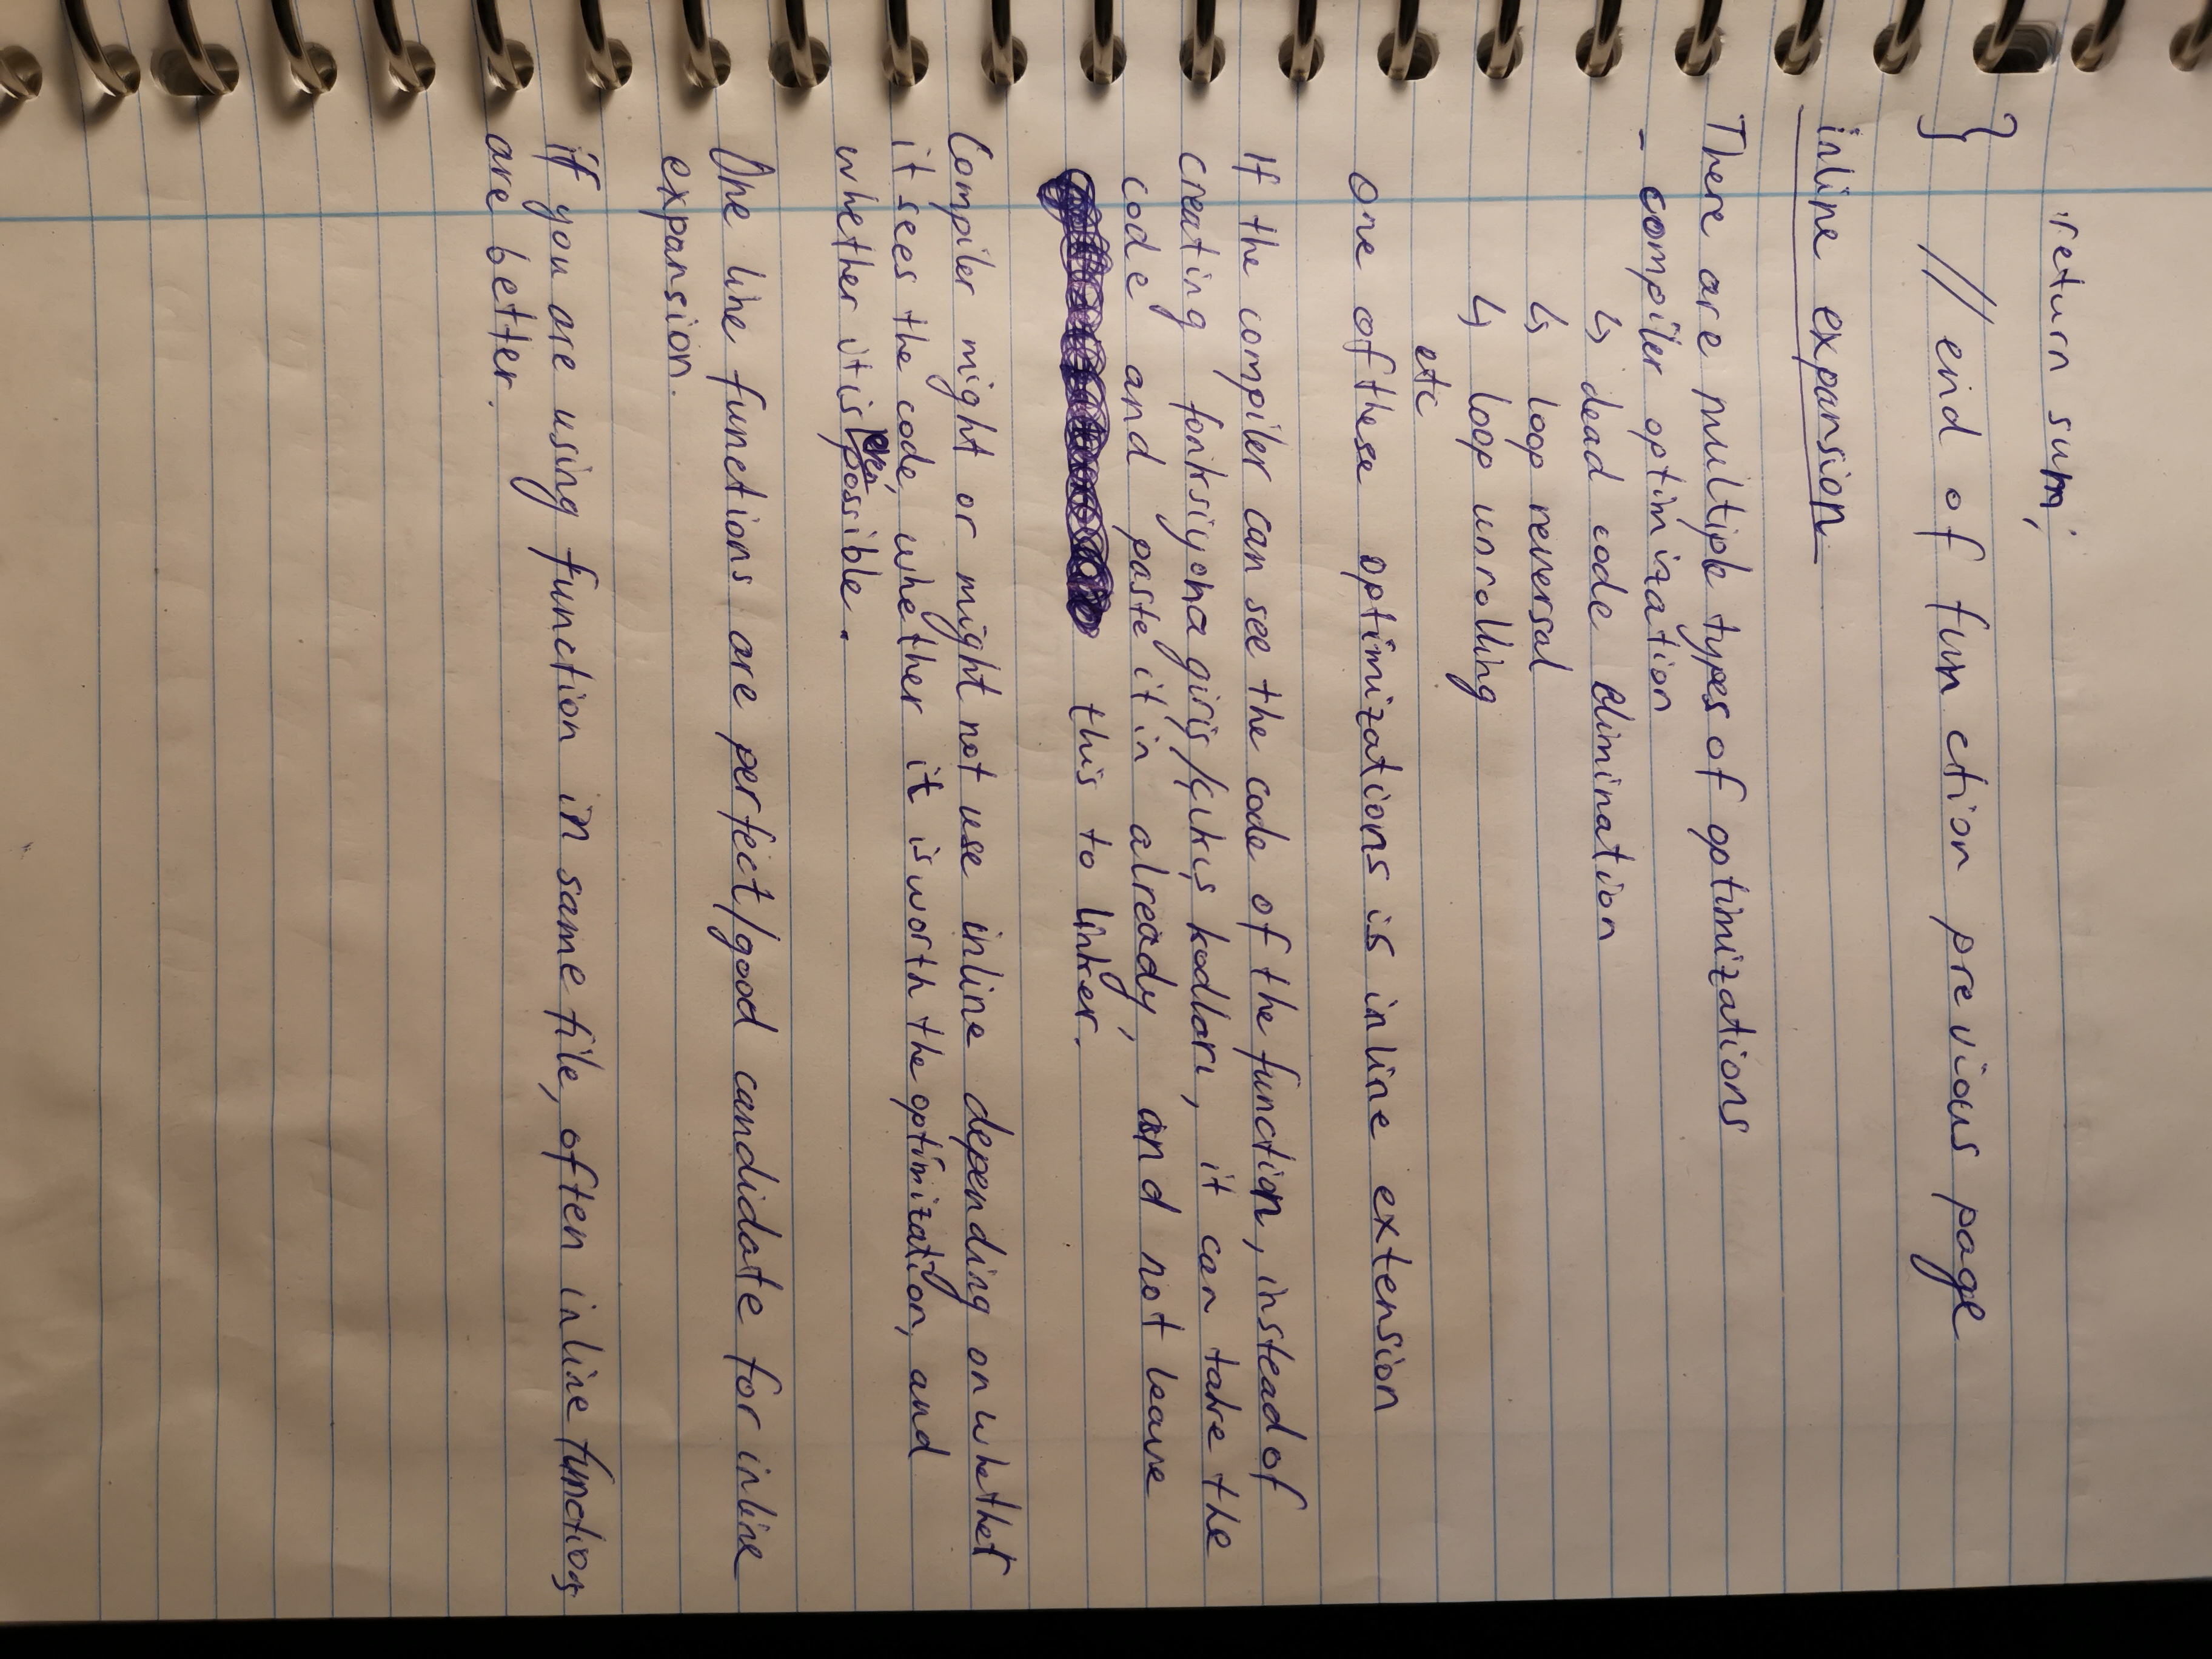 return sum;
} // end of function previous page
inline expansion
There are multiple types of optimizations
- compiler optimization
↳ dead code elimination
↳ loop reversal
↳ loop unrolling
etc
one of these optimizations is inline extension
If the compiler can see the code of the function, instead of
creating fonksiyona giriş/çıkış kodları, it can take the
code and paste it in already, and not leave
this to linker.
Compiler might or might not use inline depending on whether
it sees the code, whether it is worth the optimization, and
whether it is even possible.
One line functions are perfect/good candidate for inline
expansion.
if you are using function in same file, often inline functions
are better.